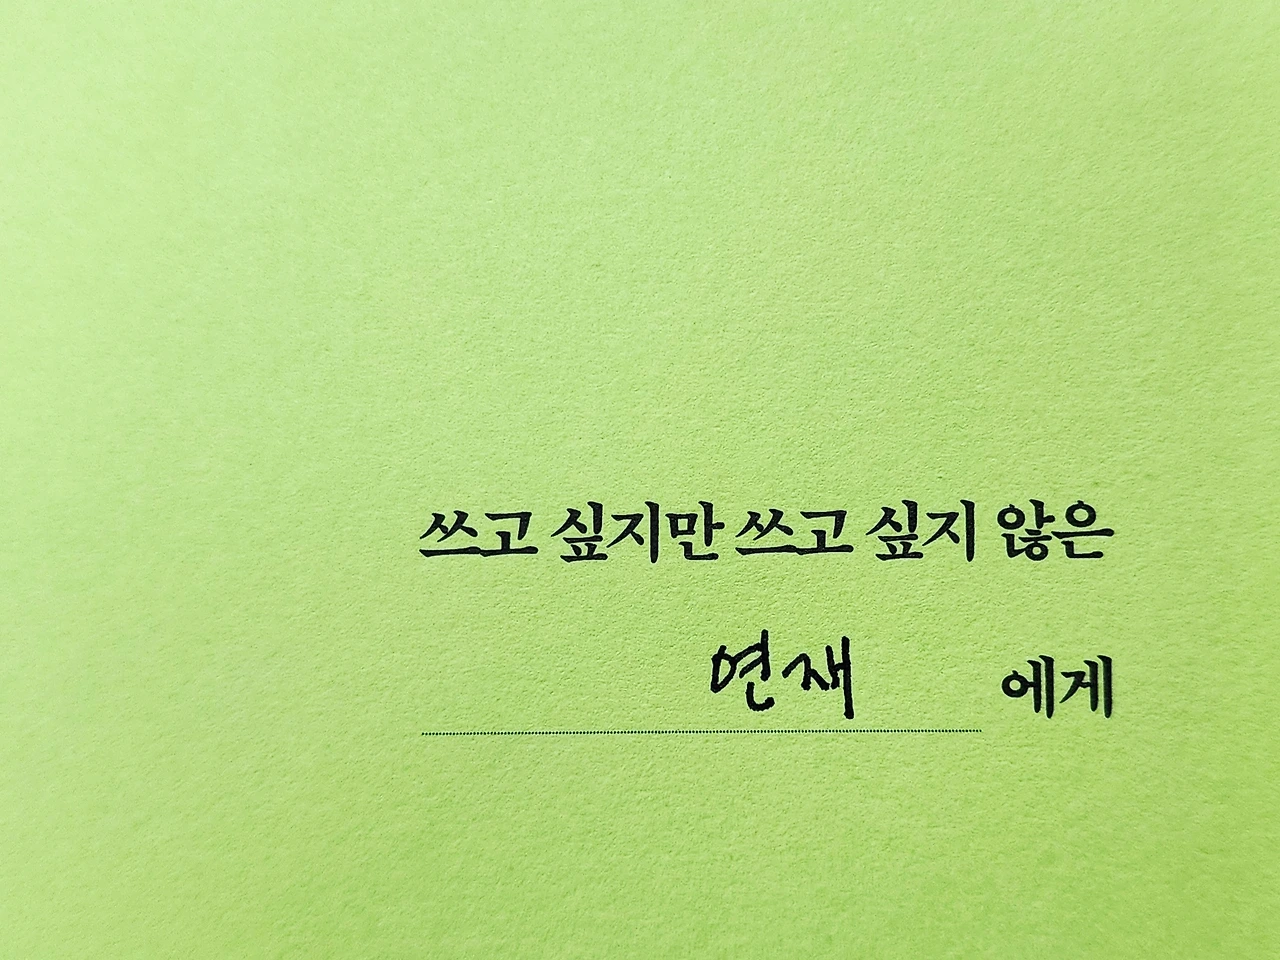 쓰고 싶지만 쓰고 싶지 않은
연재 에게